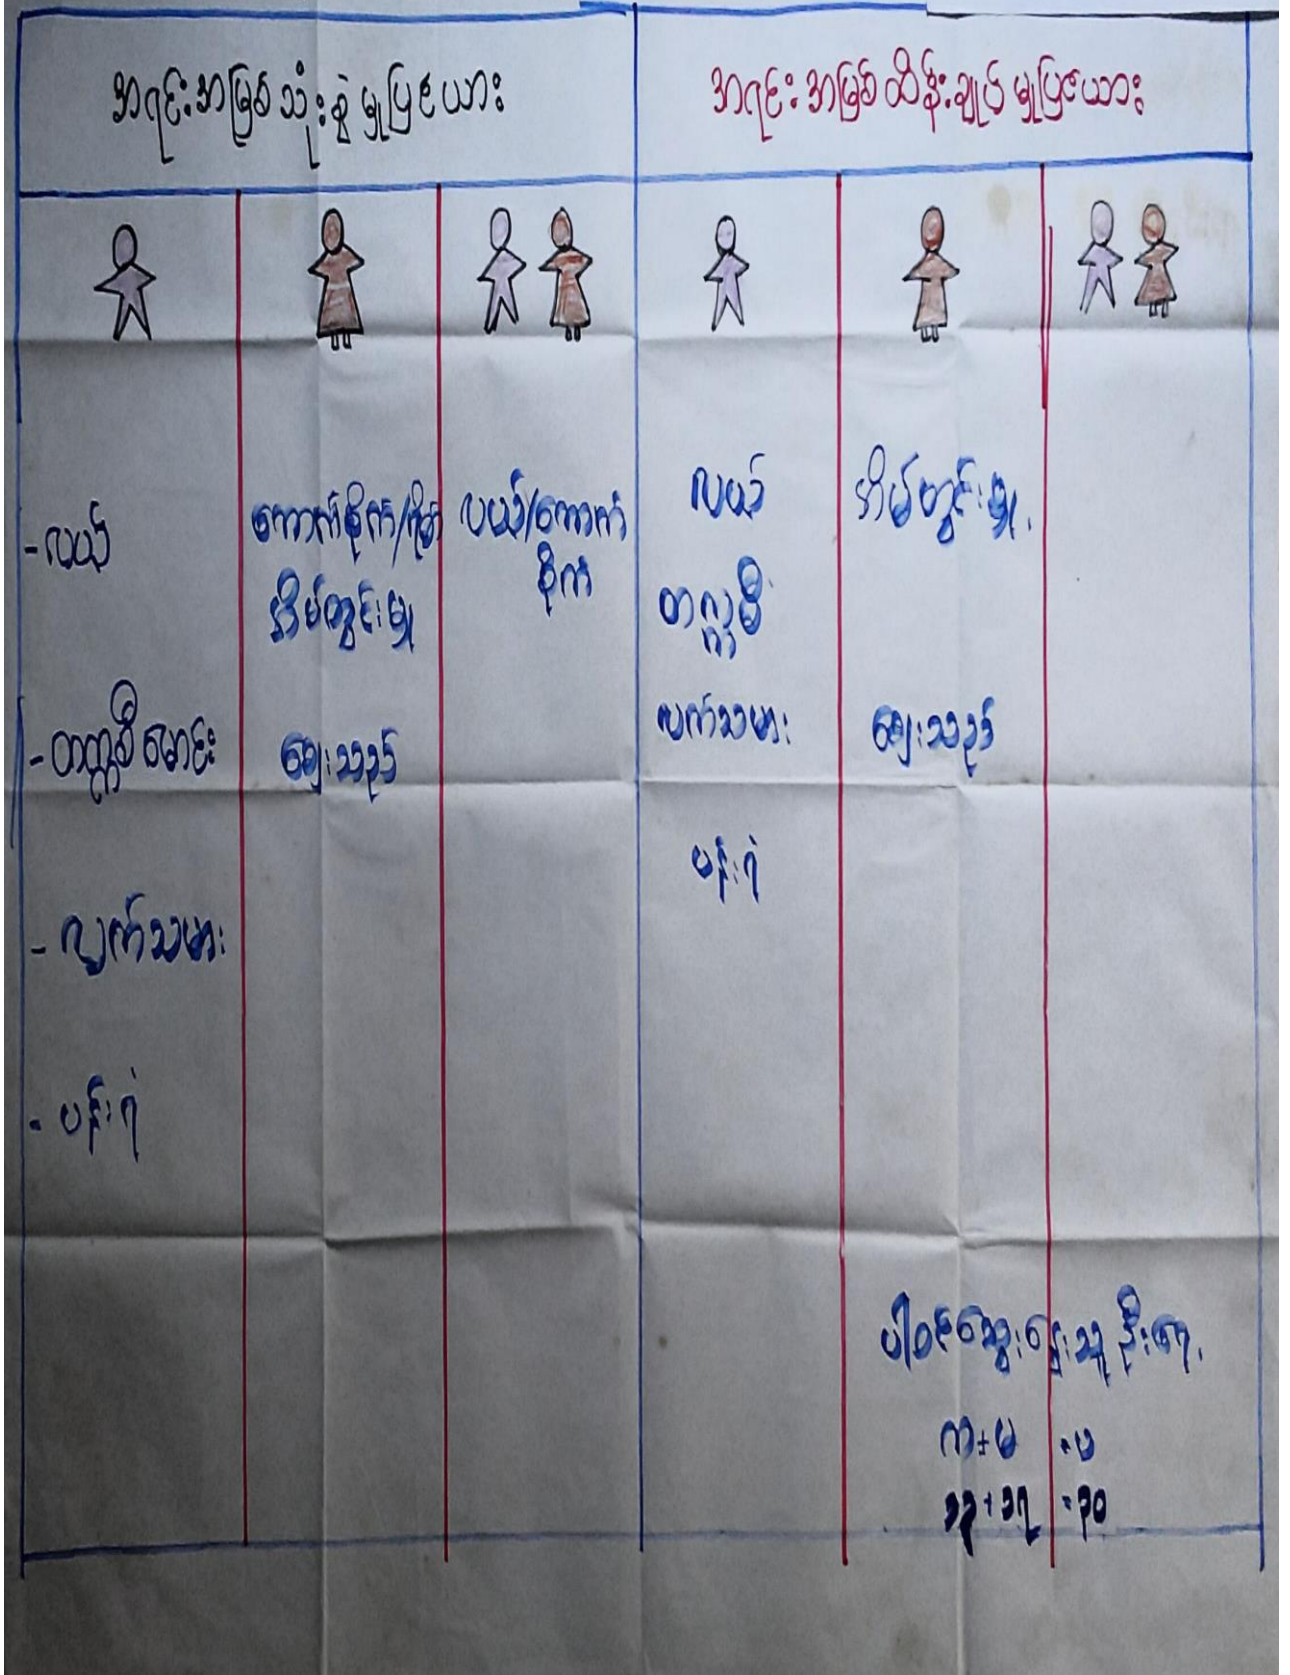 အရင်းအမြစ်သုံးစွဲမှုပြဇယား
အရင်းအမြစ်ထိန်းချုပ်မှုပြဇယား
-လယ်
-တက္ကစီမောင်း
-လျှက်သမား
-ပန်းရံ
ကောက်စိုက်/ရိတ်
အိမ်တွင်းမှု
ဈေးသည်
လယ်/ကောက်
စိုက်
လယ်
တက္ကစီ
လက်သမား
ပန်းရံ
အိမ်တွင်းမှု
ဈေးသည်
ပါဝင်ဆွေးနွေးသူဦးရေ
ကျ+မ =ပ
၁၃+၁၇ =၃၀